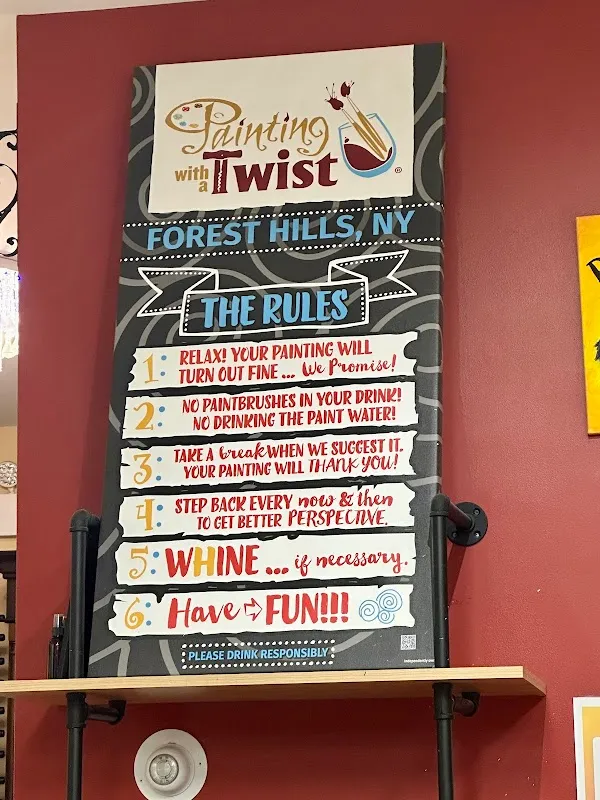 Painting
with a Twist®
FOREST HILLS, NY
THE RULES
1: RELAX! YOUR PAINTING WILL
TURN OUT FINE... We Promise!
2: NO PAINTBRUSHES IN YOUR DRINK!
NO DRINKING THE PAINT WATER!
3: TAKE A break WHEN WE SUGGEST IT.
YOUR PAINTING WILL THANK YOU!
4: STEP BACK EVERY now & then
TO GET BETTER PERSPECTIVE.
5: WHINE... if necessary.
6: Have ⇨ FUN!!!
PLEASE DRINK RESPONSIBLY